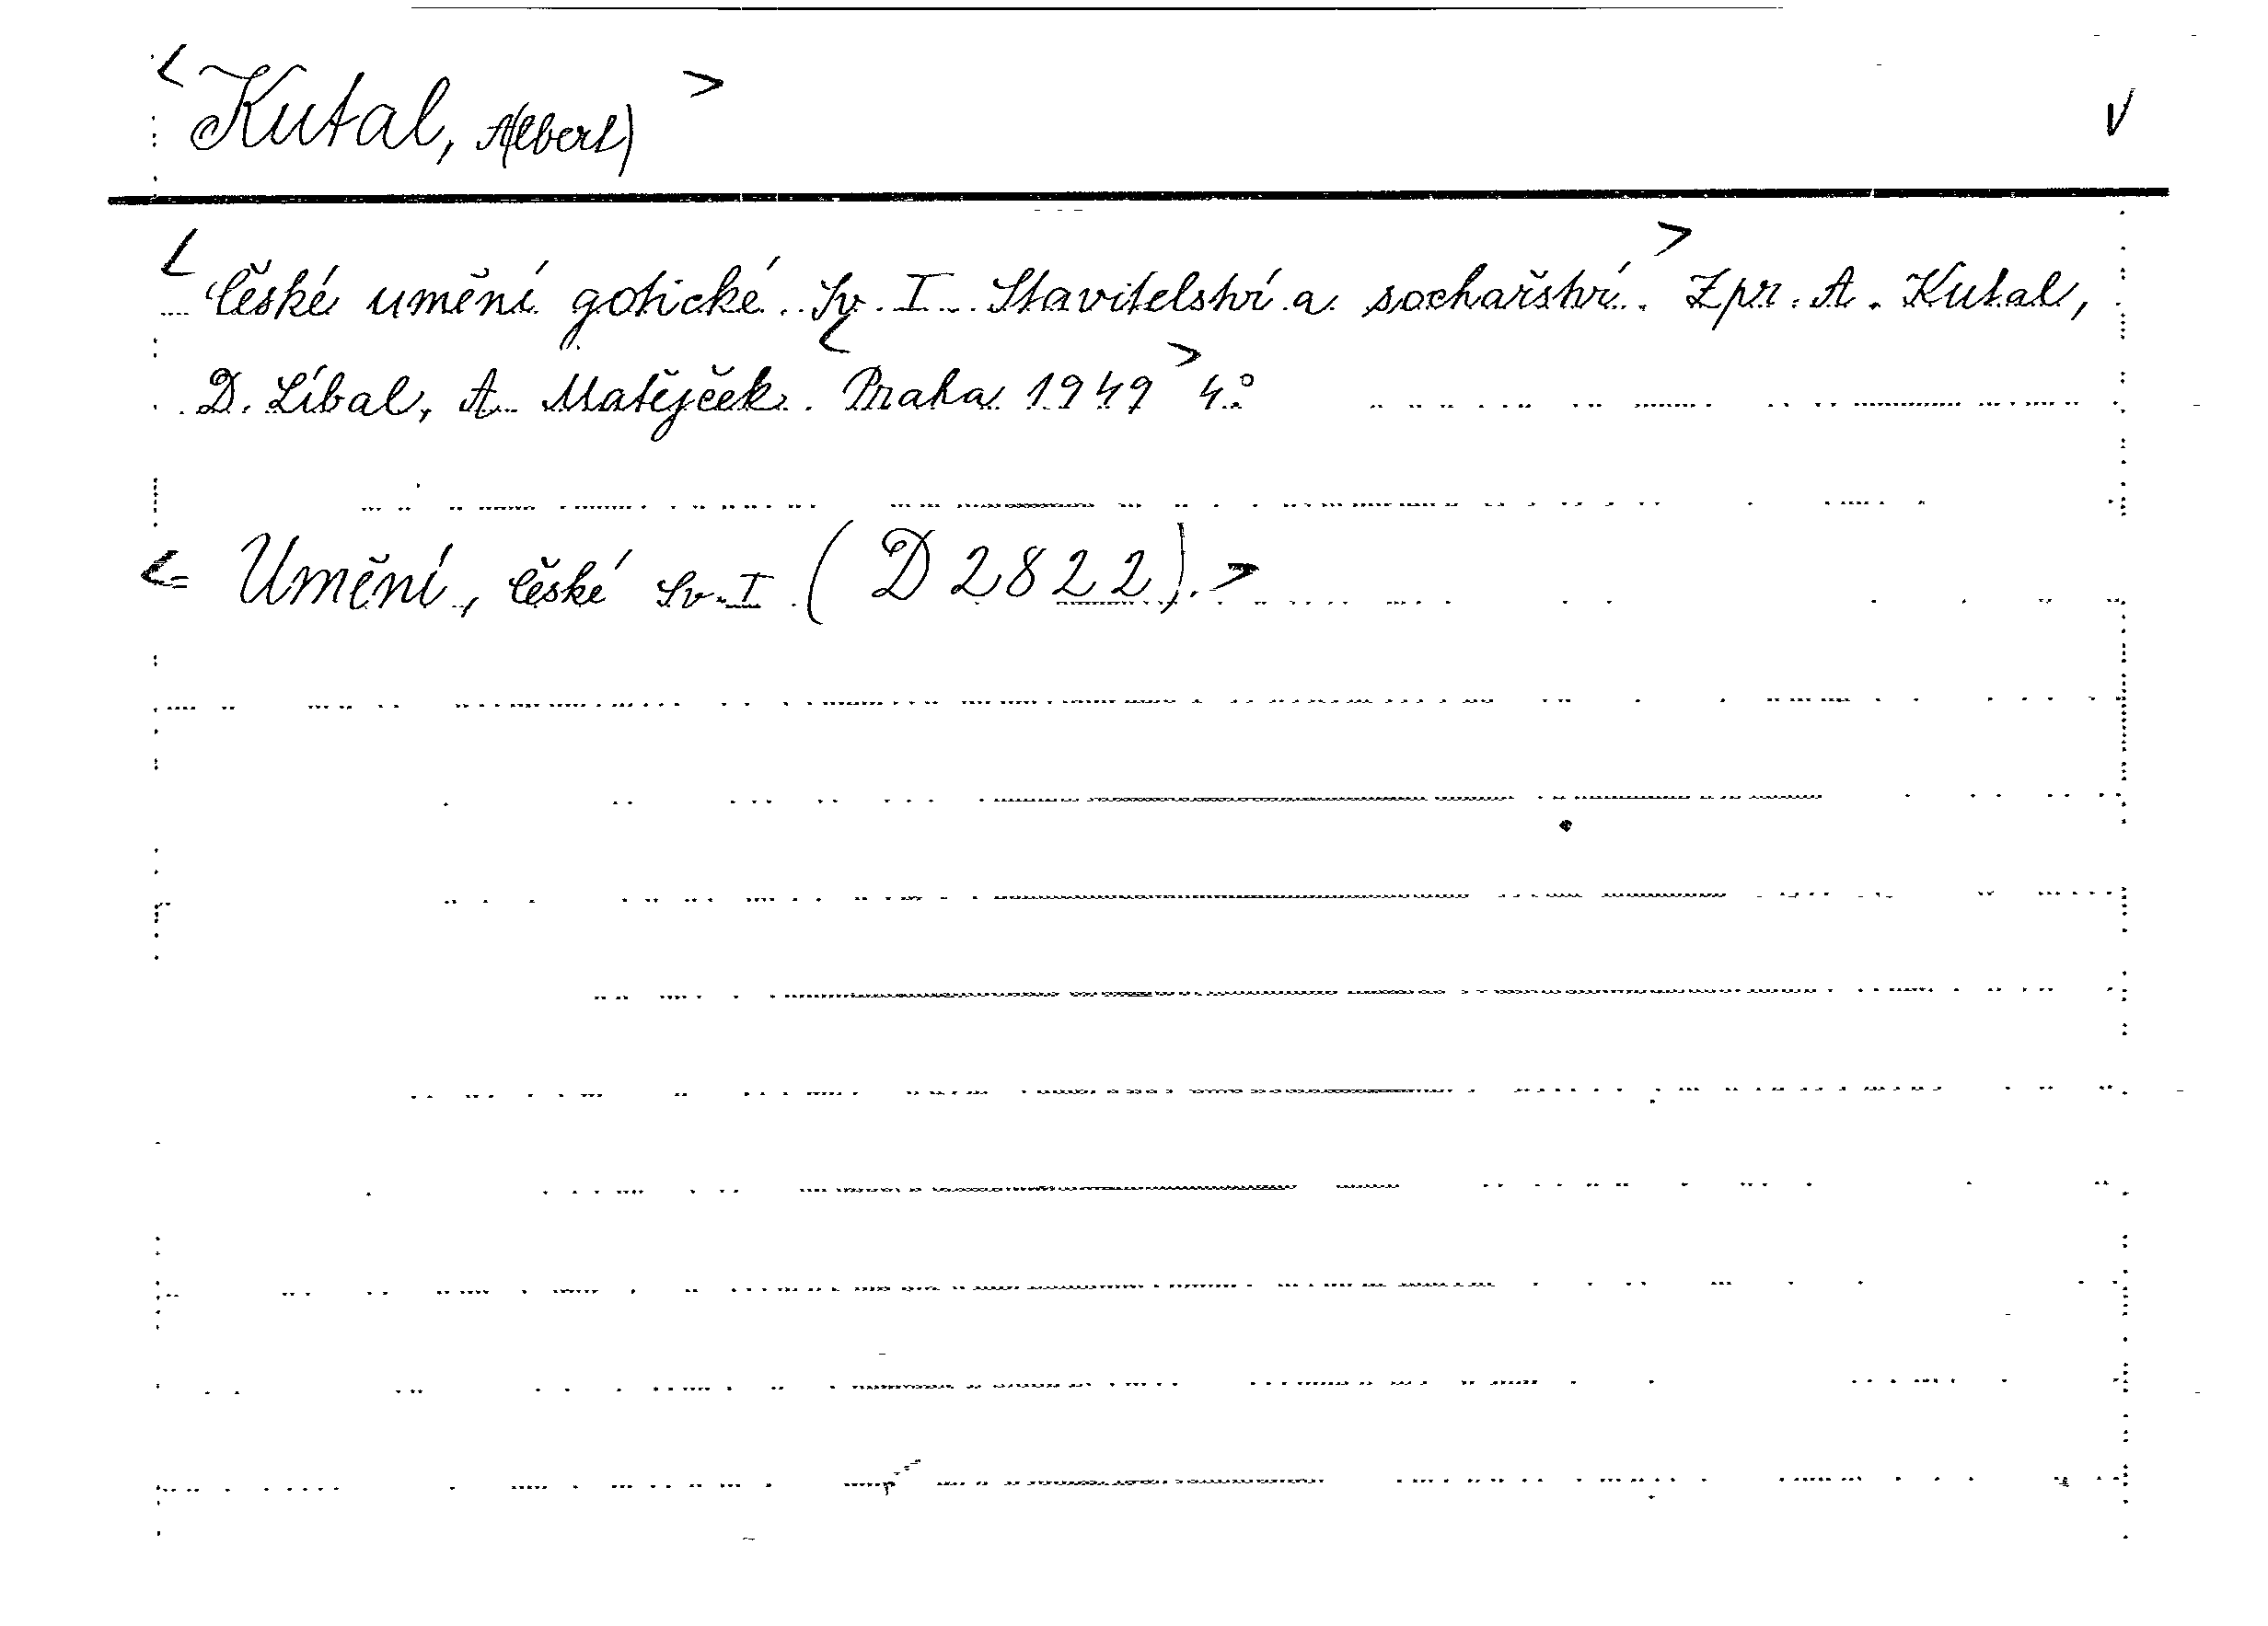 <Kutal, A(lbert)> V
<České umění gotické. Sv. I. Stavitelství a sochařství.> Zpr. A. Kutal,
D. Líbal, A. Matějček. <Praha 1949> 4°
<= Umění, české Sv. I (D 2822).>